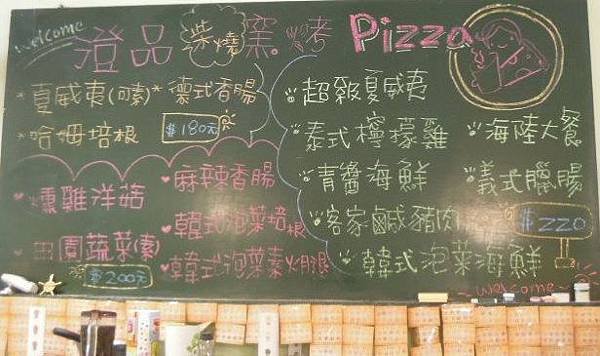 welcome
澄品柴燒窯烤 Pizza
*夏威夷(素)
*德式香腸
*哈姆培根
$180元
燻雞洋菇
麻辣香腸
田園蔬菜(素)
韓式泡菜培根
韓式泡菜素火腿
$200元
超級夏威夷
泰式檸檬雞
海陸大餐
青醬海鮮
義式臘腸
客家鹹豬肉
韓式泡菜海鮮
$220
~welcome~